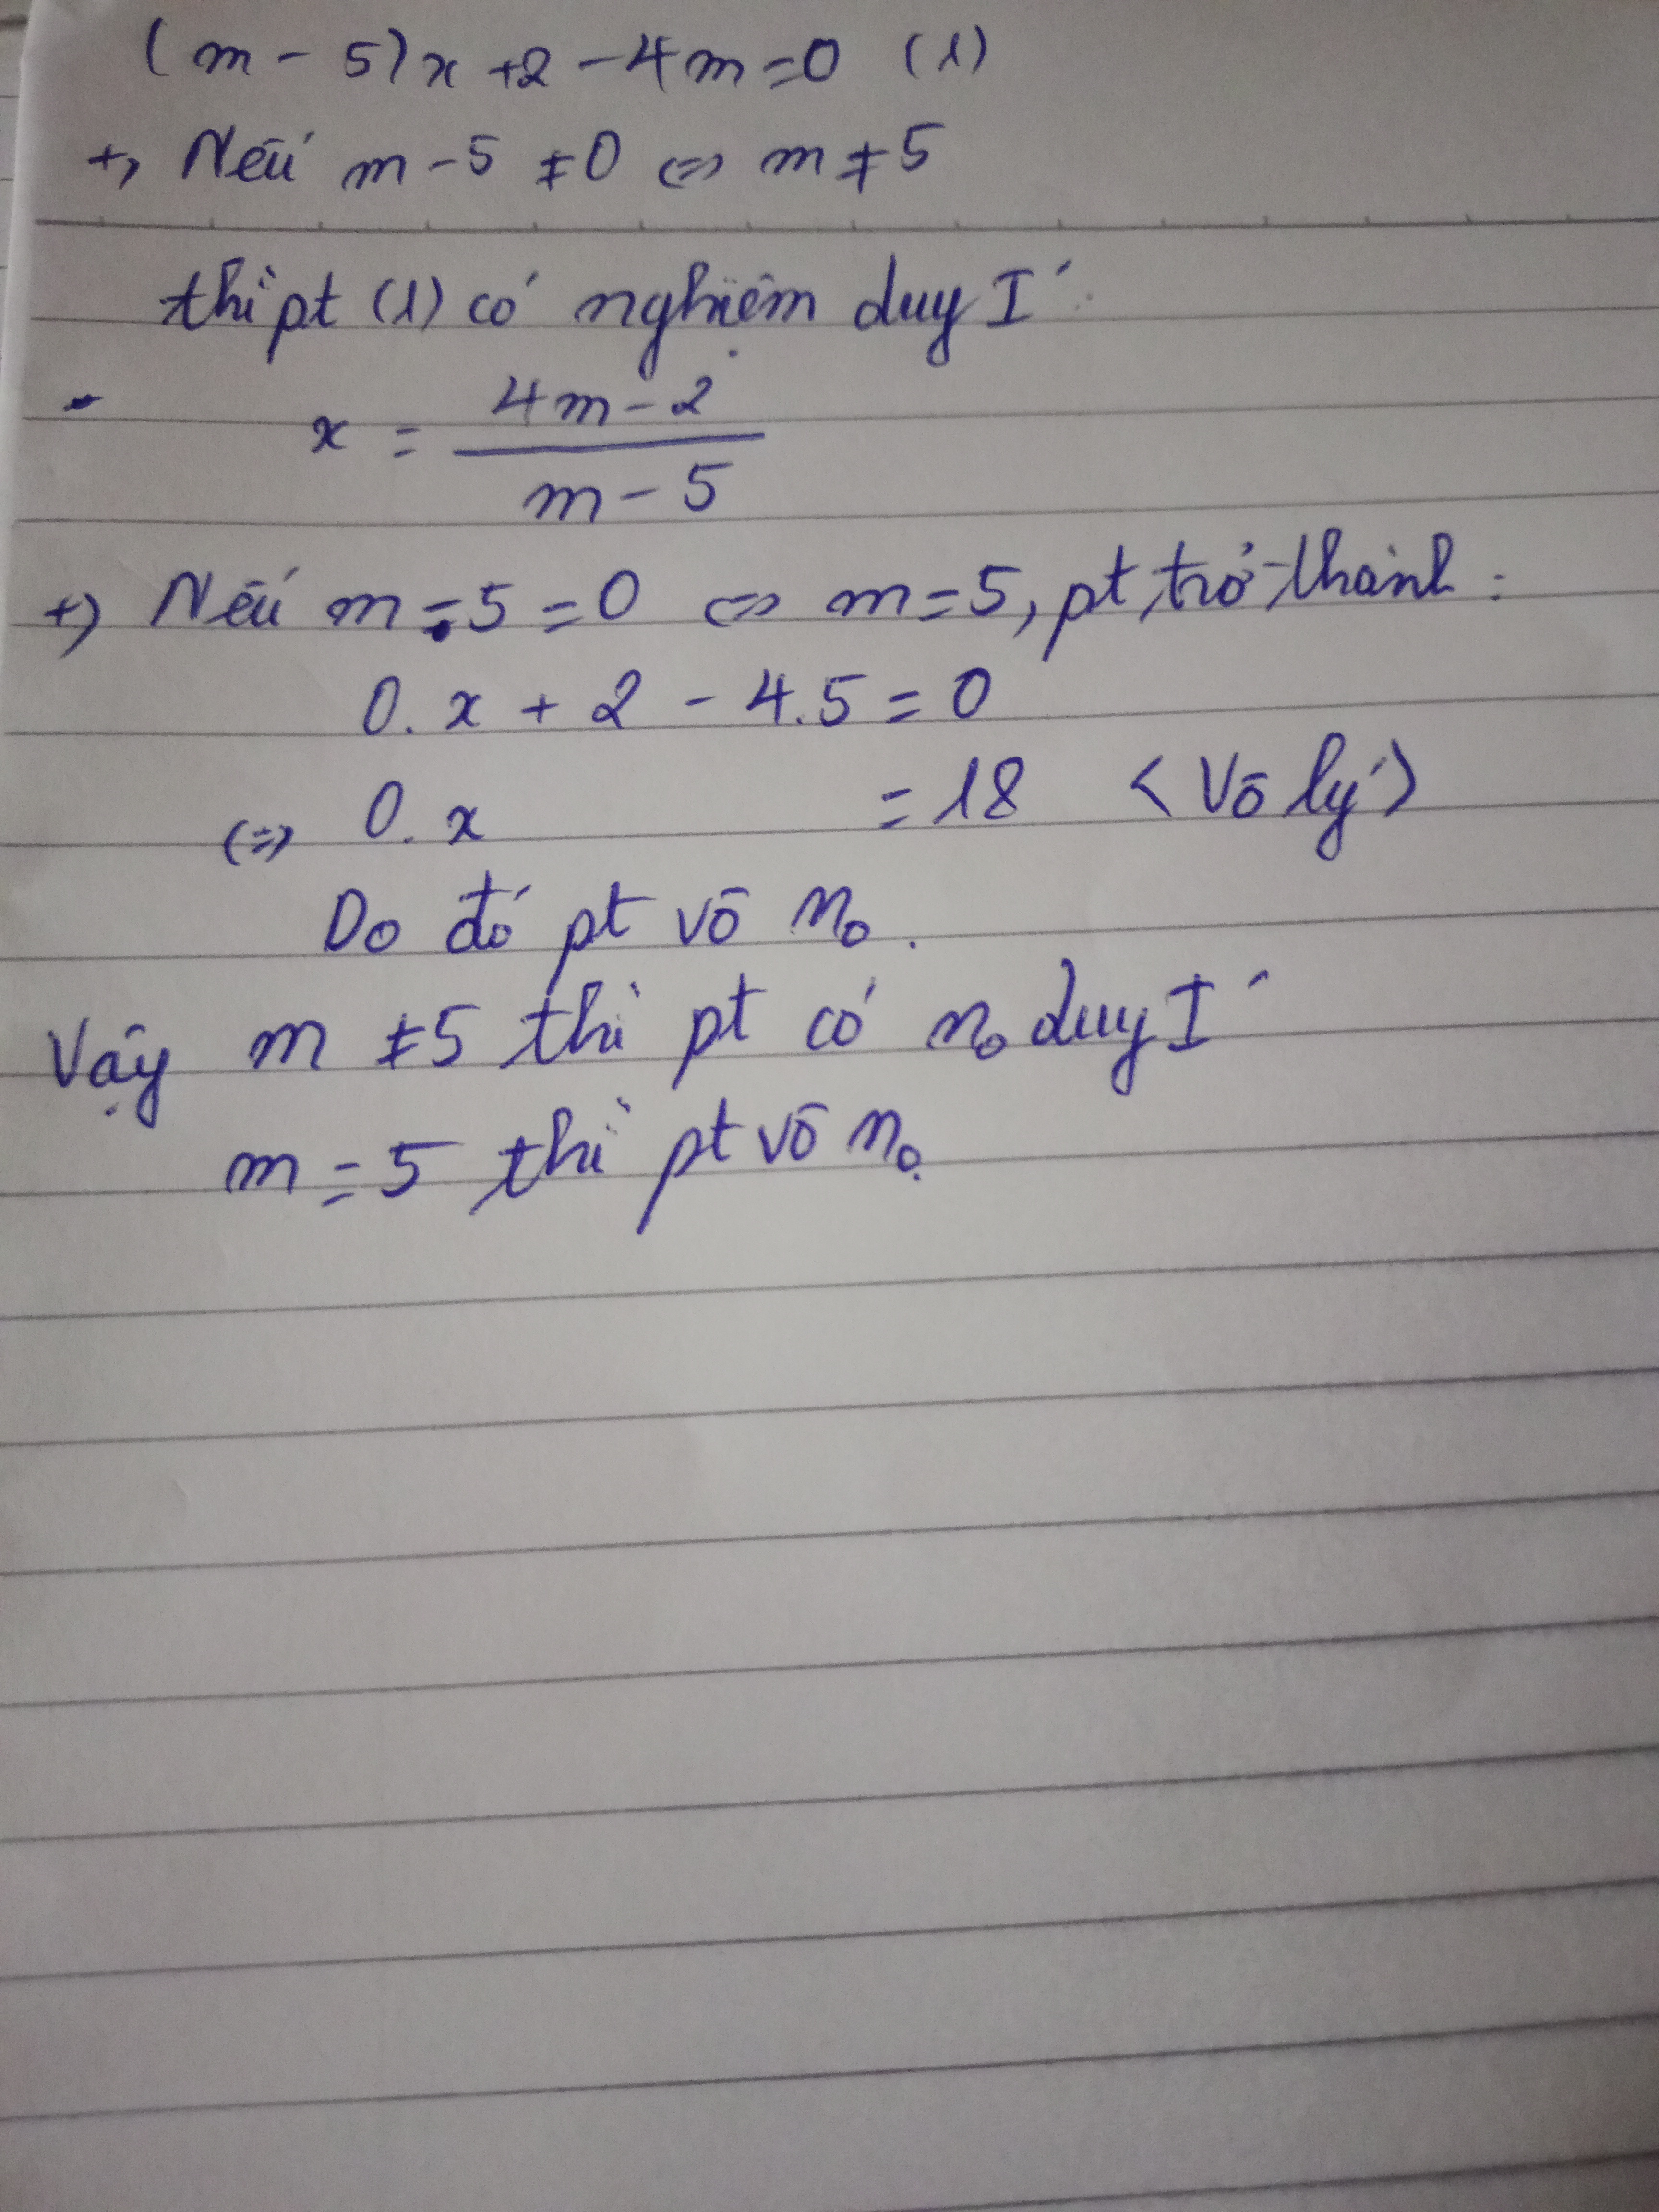 (m - 5)x + 2 - 4m = 0 (1)
+, Nếu m - 5 ≠ 0 <=> m ≠ 5
thì pt (1) có nghiệm duy I´
x = (4m - 2)/(m - 5)
+) Nếu m - 5 = 0 <=> m = 5, pt trở thành :
0. x + 2 - 4.5 = 0
(=) 0. x = 18 < Vô lý >
Do đó pt vô n₀.
Vậy m ≠ 5 thì pt có n₀ duy I´
m = 5 thì pt vô n₀.